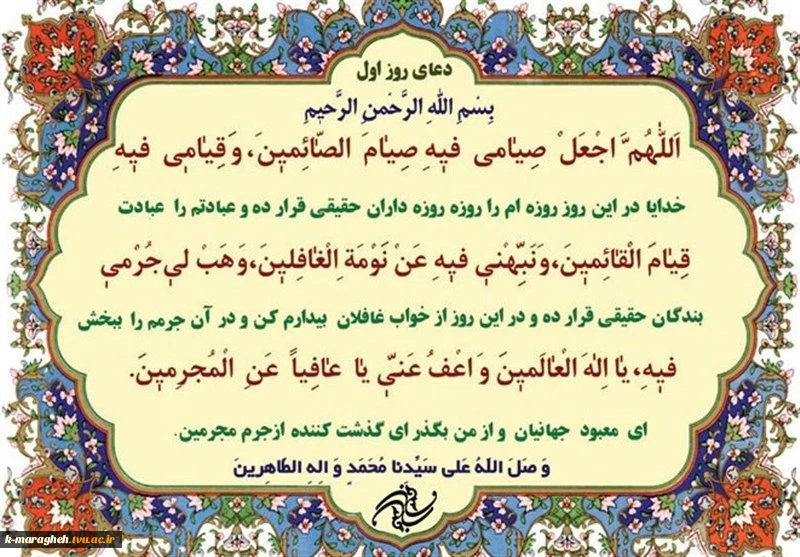 دعای روز اول
بِسْمِ اللهِ الرَّحْمنِ الرَّحیٖمِ
اَللّٰهُمَّ اجْعَلْ صِیٰامی فیٖهِ صِیٰامَ الصّٰائِمیٖنَ، وَقِیٰامیٖ فیٖهِ
خدایا در این روز روزه ام را روزه روزه داران حقیقی قرار ده و عبادتم را عبادت
قِیٰامَ الْقٰائِمیٖنَ، وَنَبِّهْنیٖ فیٖهِ عَنْ نَوْمَةِ الْغٰافِلیٖنَ، وَهَبْ لیٖ جُرْمیٖ
بندگان حقیقی قرار ده و در این روز از خواب غافلان بیدارم کن و در آن جرمم را ببخش
فیٖهِ، یٰا اِلٰهَ الْعٰالَمیٖنَ وَ اعْفُ عَنّیٖ یٰا عٰافِیاً عَنِ الْمُجرِمیٖنَ.
ای معبود جهانیان و از من بگذر ای گذشت کننده ازجرم مجرمین.
وَ صَلَ اللهُ عَلی سَیِّدنا مُحَمَدٍ وَ الِهِ الطّاهِرینَ
k-maragheh.tvu.ac.ir